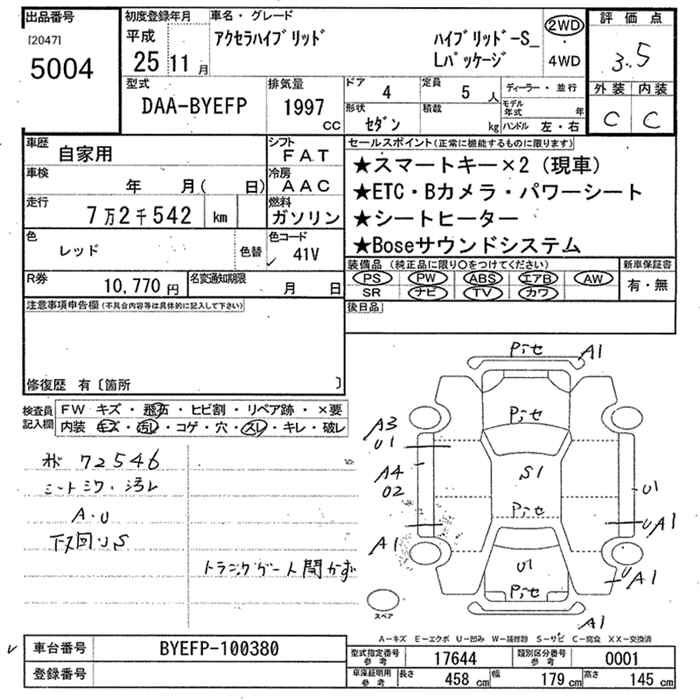 出品番号
[2047]
5004
初度登録年月
平成
25 11 月
車名・グレード
アクセラハイブリッド ハイブリッド-S_
Lパッケージ
2WD
4WD
評価点
3.5
外装 内装
C C
型式
DAA-BYEFP
排気量
1997 cc
ドア 4
定員 5 人
形状 セダン
積載 kg
ディーラー・並行
モデル年式 年
ハンドル 左・右
車歴 自家用
シフト FAT
車検 年 月( 日)
冷房 AAC
走行 7万2千542 km
燃料 ガソリン
色 レッド 色替
色コード 41V
R券 10,770円
名変通知期限 月 日
セールスポイント(正常に機能するものに限ります)
★スマートキー×2(現車)
★ETC・Bカメラ・パワーシート
★シートヒーター
★Boseサウンドシステム
装備品(純正品に限り○をつけてください)
新車保証書
PS PW ABS エアB AW
SR ナビ TV カワ
有・無
後日品
注意事項申告欄(不具合内容等は具体的に記入して下さい)
修復歴 有〔箇所 〕
検査員記入欄
FW キズ・飛石・ヒビ割・リペア跡・×要
内装 キズ・汚レ・コゲ・穴・スレ・キレ・破レ
72546
シートシワ・汚レ
A・U
下廻りS
トランクゲート開かず
A1
A3
U1
A4
U2
A1
S1
U1
U1
UA1
UA1
A1
スペア
A-キズ E-エクボ U-凹み W-補修跡 S-サビ C-腐食 XX-交換済
車台番号 BYEFP-100380
登録番号
型式指定番号 参考 17644
類別区分番号 参考 0001
車庫証明用 参考 長さ 458 cm 幅 179 cm 高さ 145 cm